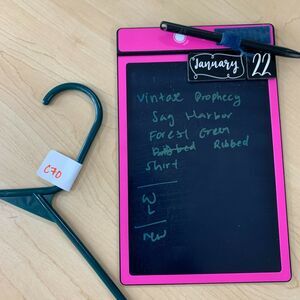 January 22
Vintage Prophecy
Sag Harbor
Forest Green
Ribbed
Shirt
C70